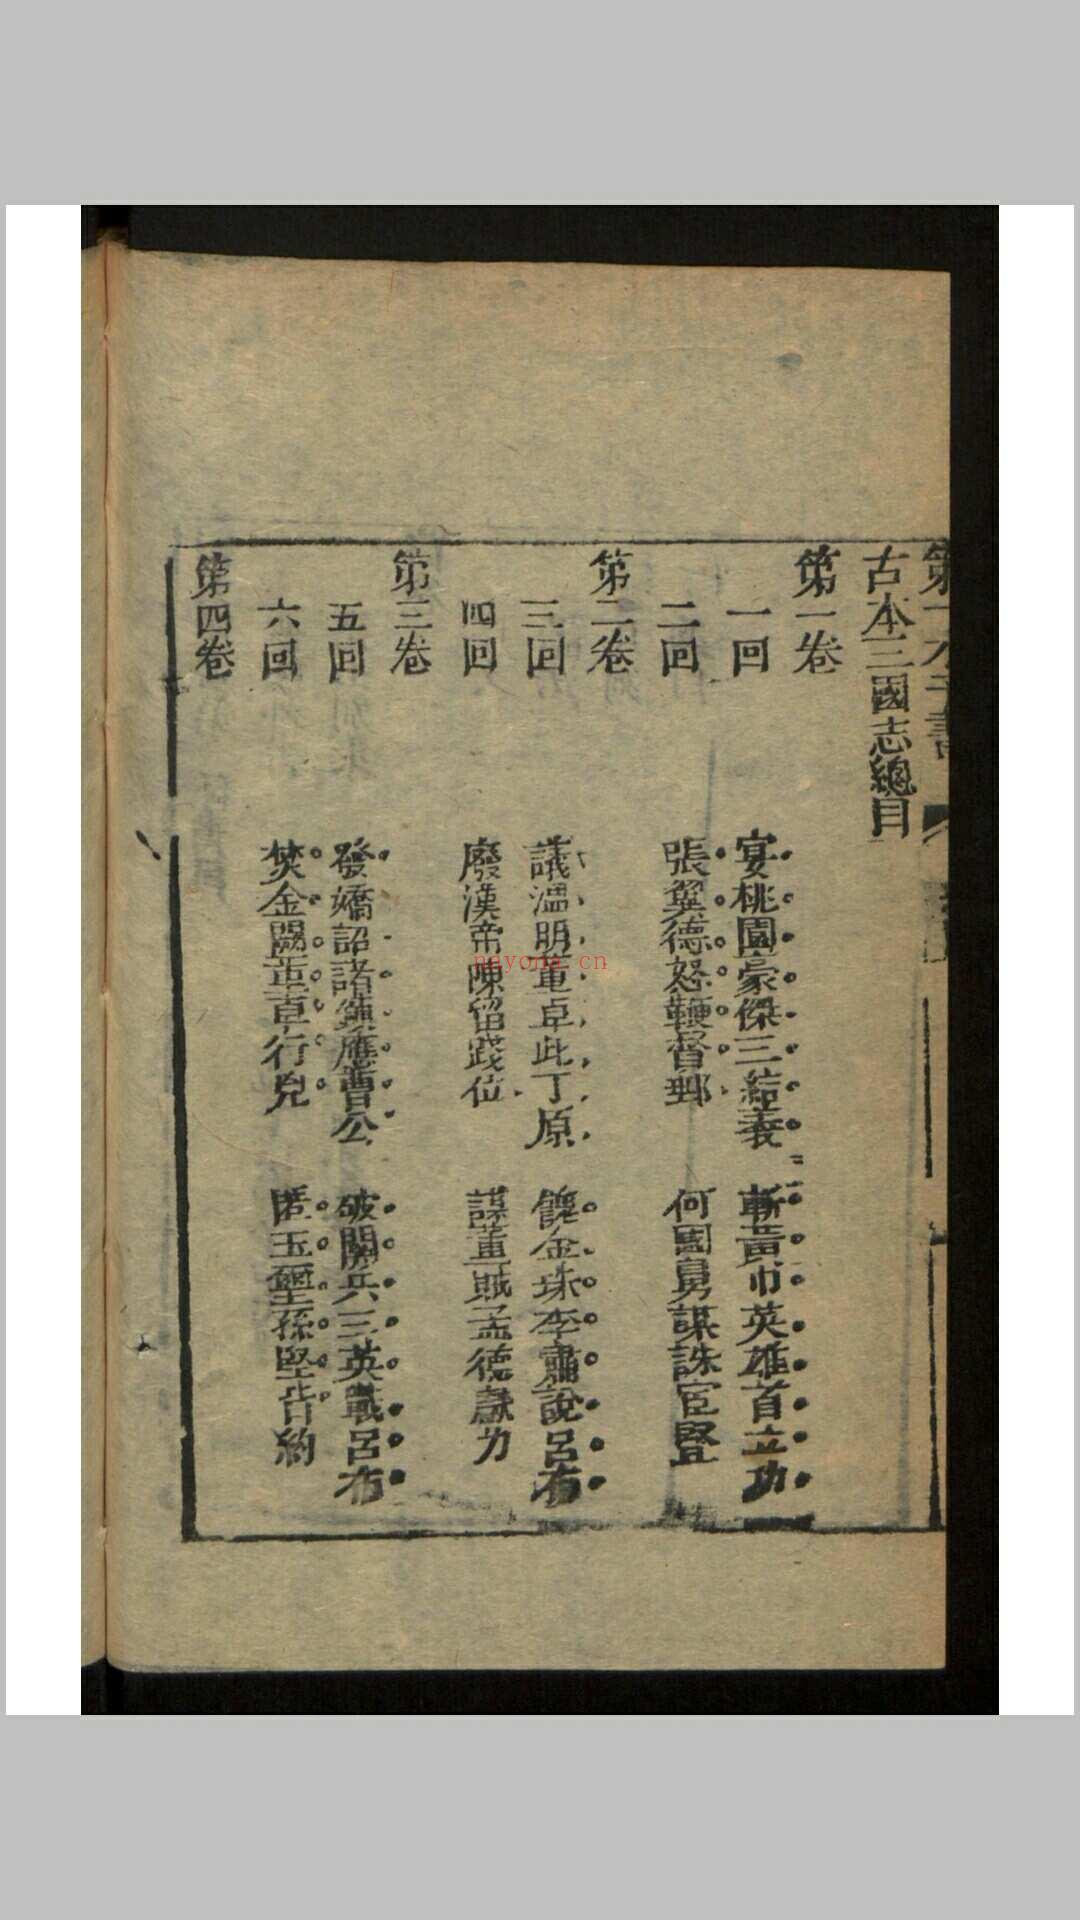 古本三國志總目
第一卷
一回 宴桃園豪傑三結義 斬黃巾英雄首立功
二回 張翼德怒鞭督郵 何國舅謀誅宦豎
第二卷
三回 議溫明董卓叱丁原 餽金珠李肅說呂布
四回 廢漢帝陳留踐位 謀董賊孟德獻刀
第三卷
五回 發矯詔諸鎮應曹公 破關兵三英戰呂布
六回 焚金闕董卓行兇 匿玉璽孫堅背約
第四卷
nayona.cn